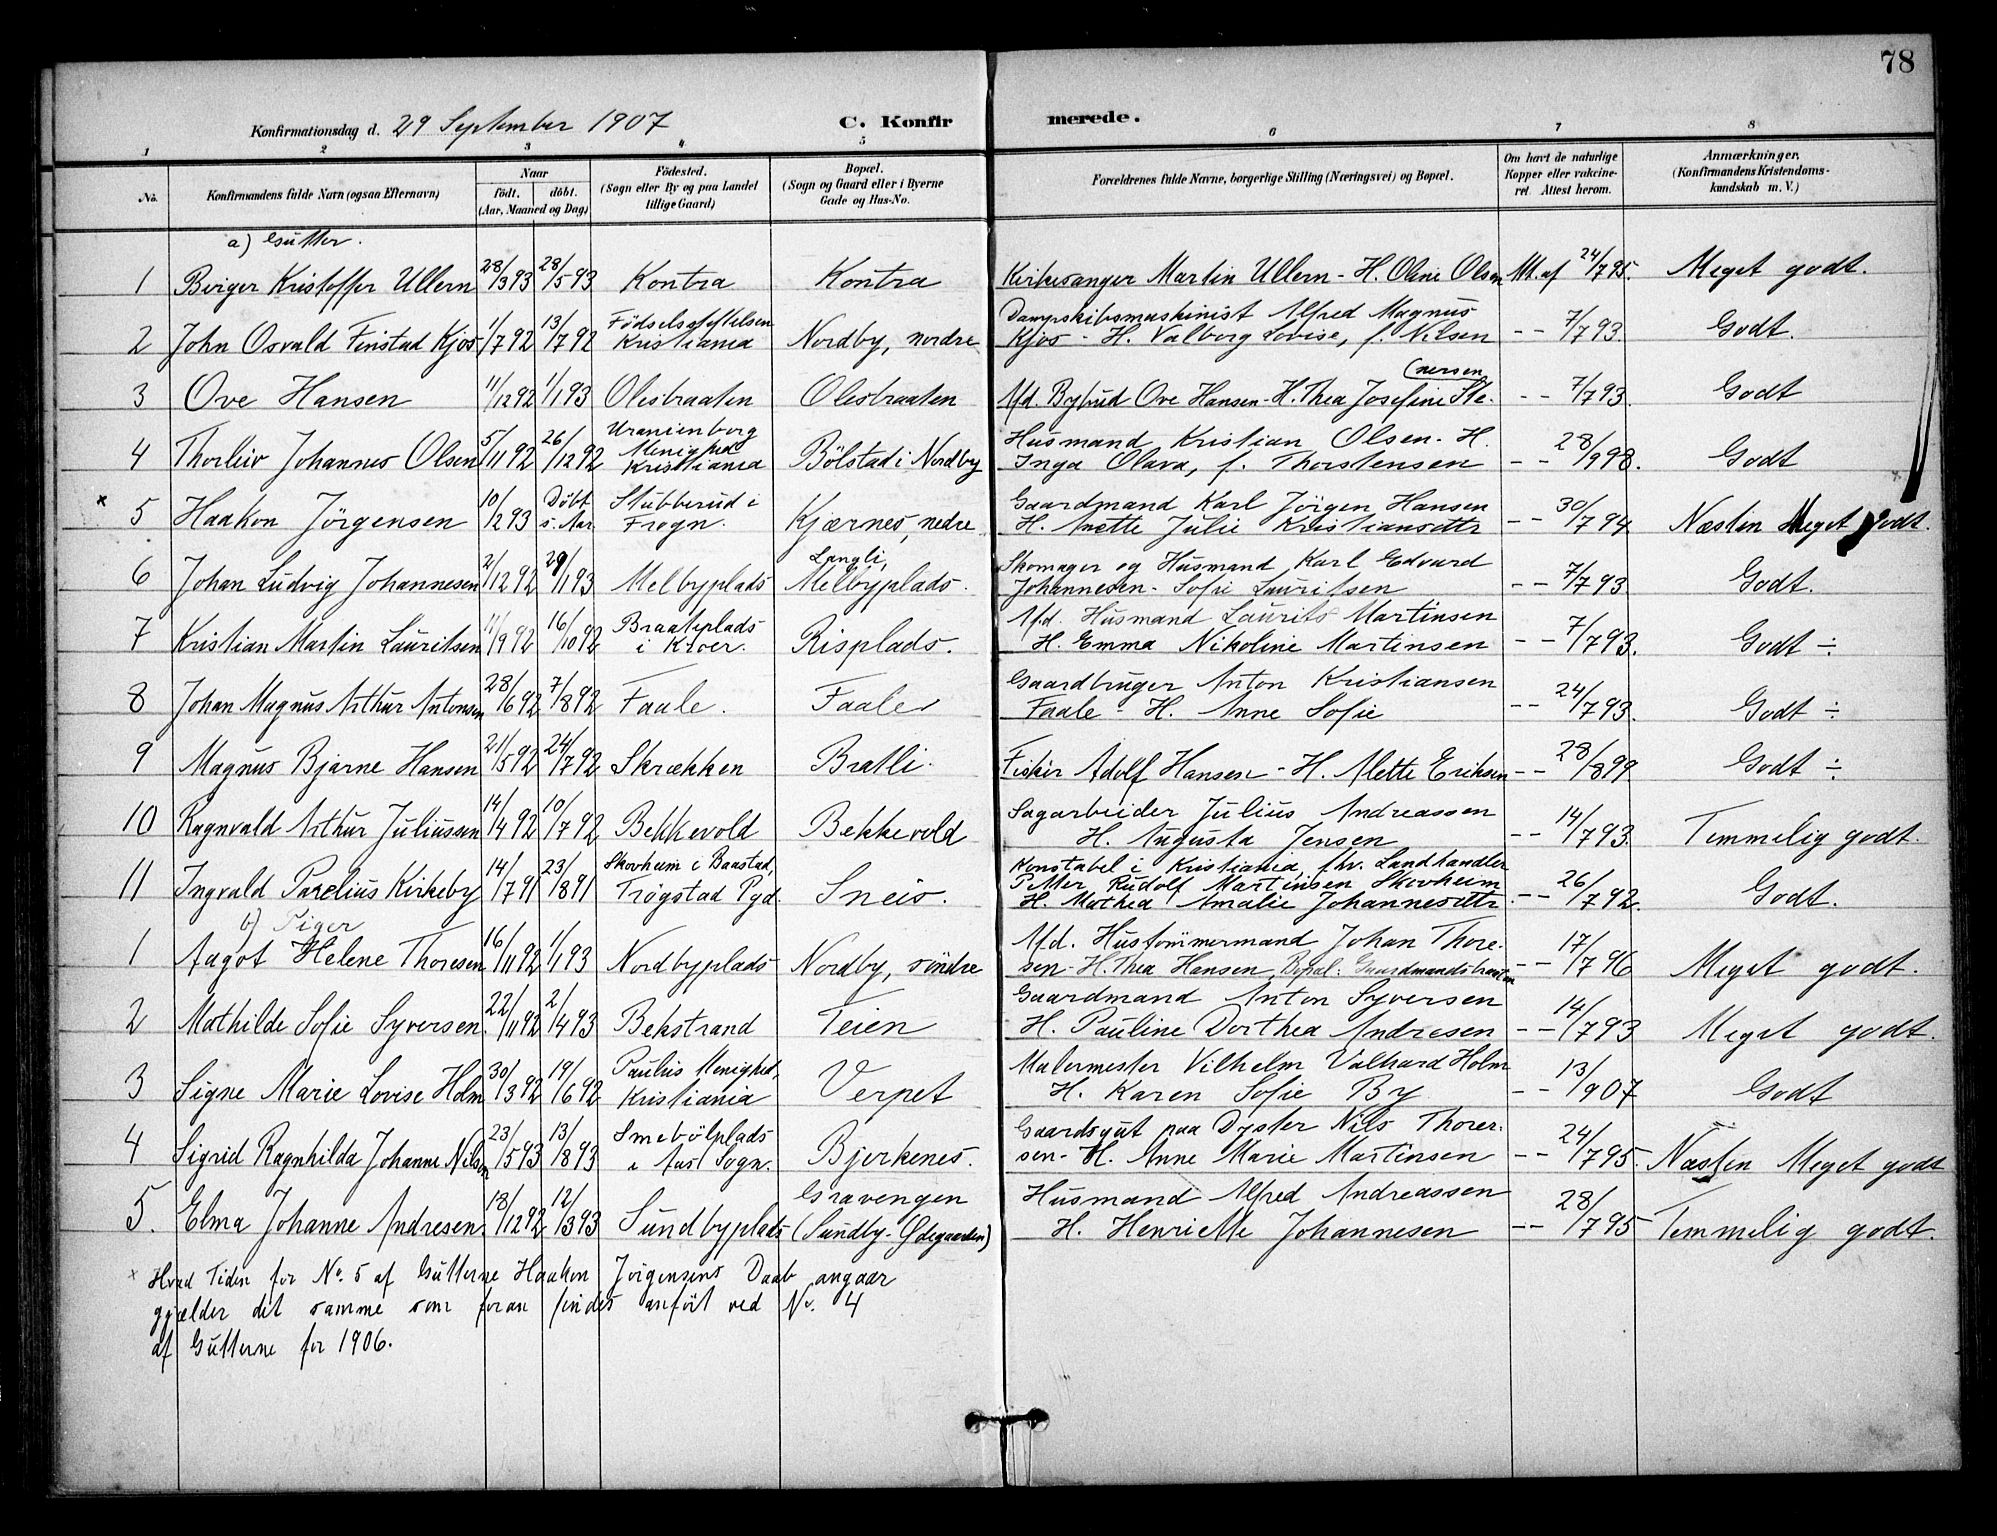 78
Konfirmationsdag d. 29 September 1907 C. Konfirmerede.
1 2 3 4 5 6 7 8
No. Konfirmandens fulde Navn (ogsaa Efternavn) Naar født. døbt. (Aar, Maaned og Dag) Fødested. (Sogn eller By og paa Landet tillige Gaard) Bopæl. (Sogn og Gaard eller i Byerne Gade og Hus-No. Forældrenes fulde Navne, borgerlige Stilling (Næringsvei) og Bopæl. Om havt de naturlige Kopper eller vakcineret. Attest herom. Anmærkninger. (Konfirmandens Kristendomskundskab m. V.)
a) Gutter.
1 Birger Kristoffer Ullern 28/3 93 28/5 93 Kontra Kontra Kirkesanger Martin Ullern - H. Oline Olsen Att. af 24/7 95. Meget godt.
2 John Osvald Finstad Kjos 1/7 92 13/7 92 Fødselsstiftelsen Kristiania Nordby, nordre Dampskibsmaskinist Alfred Magnus Kjos - H. Valborg Lovise, f. Nilsen - - 7/7 93. Godt.
3 Ove Hansen 11/12 92 1/1 93 Olesbraaten Olesbraaten Ufd. Bybud Ove Hansen - H. Thea Josefine Stenersen - - 7/7 93. Godt
4 Thorleiv Johannes Olsen 5/11 92 26/12 92 Uranienborg Menighed Kristiania Bölstad i Nordby Husmand Kristian Olsen - H. Inga Olava, f. Thorstensen - - 28/9 98. Godt
× 5 Haakon Jörgensen 10/12 93 Döbt s. Aar Stubberud i Frogn. Kjærnes, nedre Gaardmand Karl Jörgen Hansen H. Anette Julie Kristiansdttr - - 30/7 94 Næsten Meget godt.
6 Johan Ludvig Johannesen 2/12 92 29/1 93 Melbyplads Langli, Melbyplads. Skomager og Husmand Karl Edvard Johannesen - Sofie Lauritsen - - 7/7 93. Godt.
7 Kristian Martin Lauritsen 11/9 92 16/10 92 Braateplads i Kroer. Risplads. Ufd. Husmand Laurits Martinsen H. Emma Nikoline Martinsen - - 7/7 93. Godt ÷
8 Johan Magnus Arthur Antonsen 28/6 92 7/8 92 Faale. Faale Gaardbruger Anton Kristiansen Faale - H. Anne Sofie - - 24/7 93. Godt ÷
9 Magnus Bjarne Hansen 21/5 92 24/7 92 Skrækken Bratli. Fisker Adolf Hansen - H. Alette Eriksen - - 28/8 99 Godt ÷
10 Ragnvald Arthur Juliussen 14/4 92 10/7 92 Bekkevold Bekkevold Sagarbeider Julius Andreassen H. Augusta Jensen - - 14/7 93. Temmelig godt.
11 Ingvald Parelius Kirkeby 14/7 91 23/8 91 Skovheim i Baastad, Trøgstad Pgd. Sneis. Konstabel i Kristiania, fhv. Landhandler Petter Rudolf Martinsen Skovheim H. Mathea Amalie Johannesdttr. - - 26/7 92. Godt.
b) Piger
1 Aagot Helene Thoresen 16/11 92 1/1 93 Nordbyplads Nordby, söndre Ufd. Hustömmermand Johan Thoresen - H. Thea Hansen, Bopæl: - - 17/7 96 Meget godt.
2 Mathilde Sofie Syversen. 22/11 92 2/4 93 Bekstrand Teien Gaardmand Anton Syversen H. Pauline Dorthea Andresen - - 14/7 93 Meget godt.
3 Signe Marie Lovise Holm 30/3 92 19/6 92 Paulus Menighed, Kristiania Verpet Malermester Vilhelm Valhard Holm H. Karen Sofie By - 13/9 07 Godt
4 Sigrid Ragnhilda Johanne Nilsen 23/5 93 13/8 93 Smebölplads i Aas Sogn. Bjerkenes. Gaardsgut paa Dyster Nils Thoresen - H. Anne Marie Martinsen - - 24/7 95. Næsten Meget godt
5. Elma Johanne Andresen. 18/12 92 12/3 93 Sundbyplads Gravengen (Sundby-Ødegaarden) Husmand Alfred Andreassen H. Henriette Johannesen - - 28/7 95 Temmelig godt.
× Hvad Tiden for No. 5 af Gutterne Haakon Jörgensens Daab angaar
gjælder det samme som foran findes anfört ved No. 4
af Gutterne for 1906.